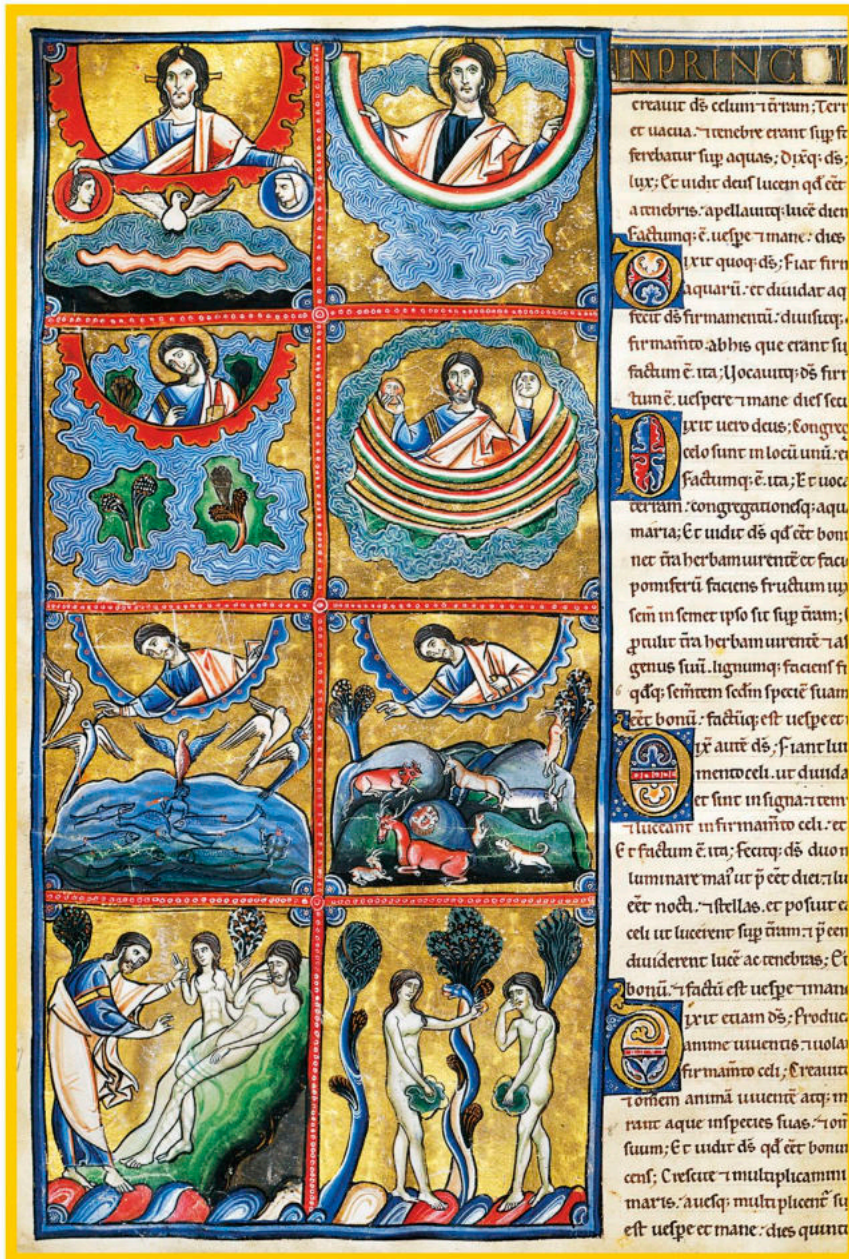 INPRINC
creauit ds celum ⁊ tr̄ram; Terr
et uacua. ⁊ tenebre erant sup̄ f
ferebatur sup̄ aquas; Dixq; ds;
lux; Et uidit deus lucem qd̄ eēt
a tenebris. apellauitq; lucē dien
factumq; ē. uesp̄e ⁊ mane. dies
Dixit quoq; ds; Fiat firm
aquarū. et diuidat aq
fecit ds firmamentū. diuisitq;
firmam̄to. ab his que erant su
factum ē. ita; Uocauitq; ds firm
tum ē. uespere ⁊ mane dies secu
Dixit uero deus; Congreg
celo sunt in locū unū. e
factumq; ē. ita; Et uoca
terram. congregationesq; aqu
maria; Et uidit ds qd̄ eēt bon
net tr̄a herbam uirentē et faci
pomiferū faciens fructum iux
sem̄ in semet ipso sit sup̄ tr̄am;
p̄tulit tr̄a herbam uirentē ⁊ a
genus suū. lignumq; faciens f
qdq; sem̄tem scdm̄ speciē suam
eēt bonū. factūq; est uesp̄e et
Dix̄ autē ds; Fiant lum
mento celi. ut diuida
et sint in signa ⁊ tem
⁊ luceant in firmam̄to celi. et
Et factum ē. ita; Fecitq; ds duo
luminare mai ut p̄ eēt diei. ⁊ lu
eēt nocti. ⁊ stellas. et posuit e
celi ut lucerent sup̄ tr̄am. ⁊ p̄een
diuiderent lucē ac tenebras; Et
bonū. ⁊ factū est uesp̄e ⁊ mane
Dixit etiam ds; Produc
anime uiuentis ⁊ uola
firmam̄to celi; Creauit
⁊ om̄em animā uiuentē atq; m
rant aque in species suas. ⁊ om
suum; Et uidit ds qd̄ eēt bonum
cens; Crescite ⁊ multiplicamini
maris. auesq; multiplicent̄ su
est uesp̄e et mane. dies quint